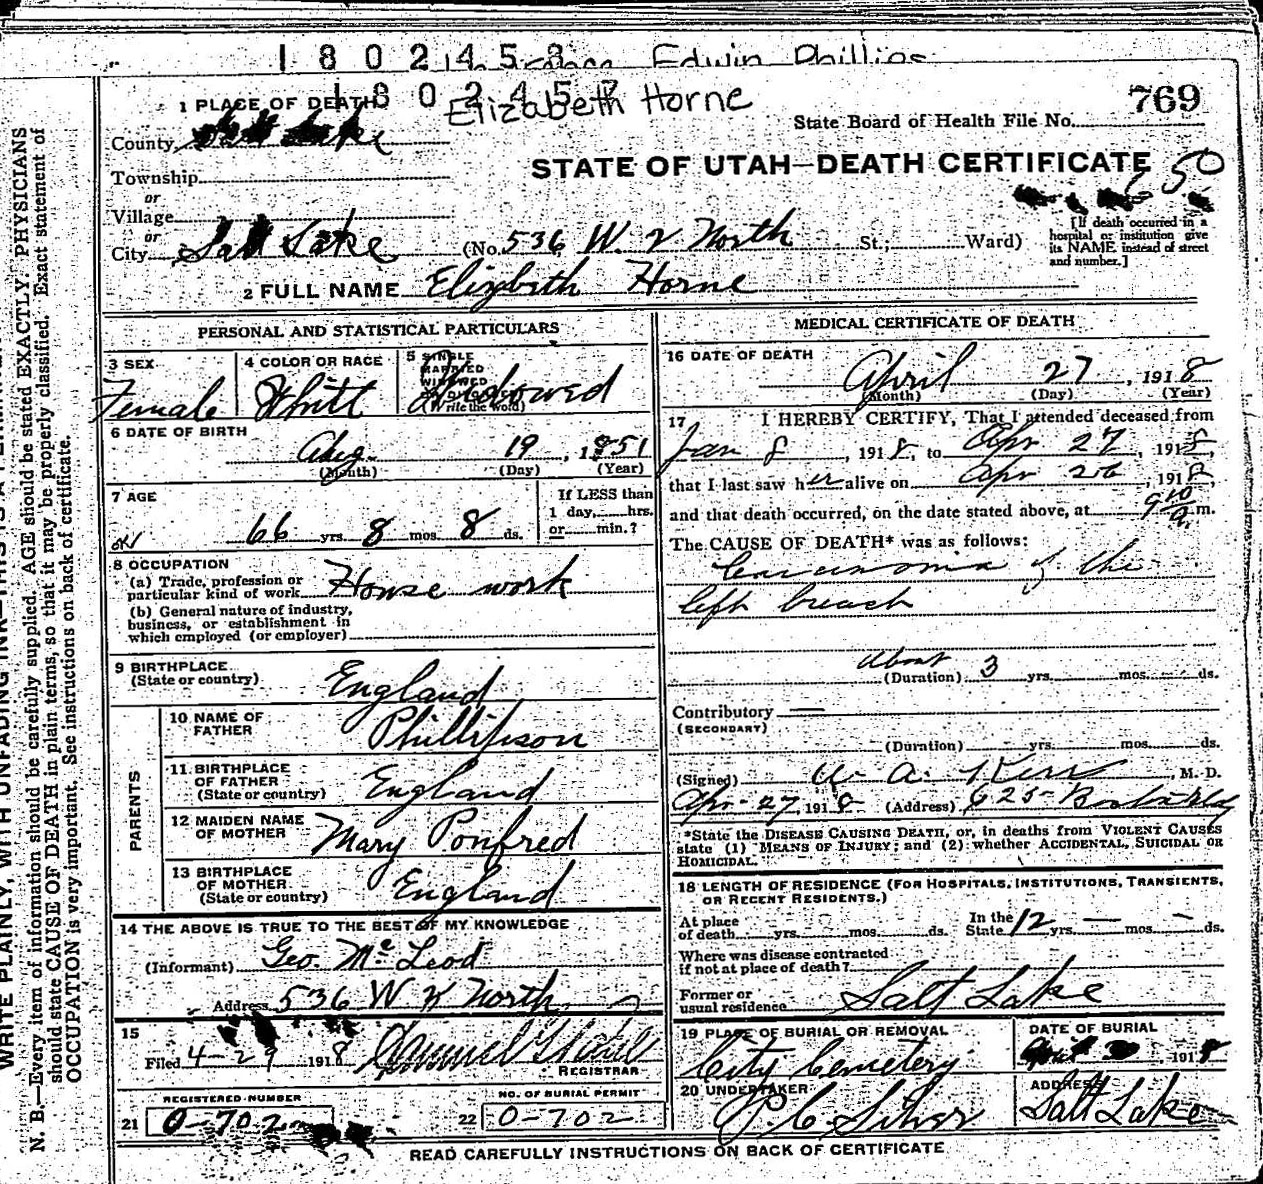 1802458 Edwin Phillips
1802457 Elizabeth Horne
769
1 PLACE OF DEATH
State Board of Health File No.
County Salt Lake
STATE OF UTAH—DEATH CERTIFICATE
650
Township
or
Village
or
City Salt Lake (No. 536 W. 2 North St.; Ward)
[If death occurred in a hospital or institution give its NAME instead of street and number.]
2 FULL NAME Elizbeth Horne
PERSONAL AND STATISTICAL PARTICULARS
3 SEX Female
4 COLOR OR RACE Whitt
5 SINGLE MARRIED WIDOWED OR DIVORCED (Write the word) Widowed
6 DATE OF BIRTH
Aug. 19, 1851
(Month) (Day) (Year)
7 AGE
66 yrs. 8 mos. 8 ds.
If LESS than 1 day, hrs. or min.?
8 OCCUPATION
(a) Trade, profession or particular kind of work House work
(b) General nature of industry, business, or establishment in which employed (or employer)
9 BIRTHPLACE (State or country) England
PARENTS
10 NAME OF FATHER Phillipson
11 BIRTHPLACE OF FATHER (State or country) England
12 MAIDEN NAME OF MOTHER Mary Ponfred
13 BIRTHPLACE OF MOTHER (State or country) England
14 THE ABOVE IS TRUE TO THE BEST OF MY KNOWLEDGE
(Informant) Geo. Mc Leod
Address 536 W North
15
Filed 4-29 1918
REGISTRAR
REGISTERED NUMBER
21 0-702
NO. OF BURIAL PERMIT
22 0-702
MEDICAL CERTIFICATE OF DEATH
16 DATE OF DEATH
April 27, 1918
(Month) (Day) (Year)
17 I HEREBY CERTIFY, That I attended deceased from
Jan 8, 1918, to Apr 27, 1918,
that I last saw her alive on Apr 26, 1918,
and that death occurred, on the date stated above, at 9 10 a. m.
The CAUSE OF DEATH* was as follows:
Carcinoma of the
left breast
about
(Duration) 3 yrs. mos. ds.
Contributory —
(SECONDARY)
(Duration) yrs. mos. ds.
(Signed) W. A. Kerr, M. D.
Apr-27, 1918 (Address) 625
*State the DISEASE CAUSING DEATH, or, in deaths from VIOLENT CAUSES
state (1) MEANS OF INJURY; and (2) whether ACCIDENTAL, SUICIDAL OR
HOMICIDAL.
18 LENGTH OF RESIDENCE (FOR HOSPITALS, INSTITUTIONS, TRANSIENTS,
OR RECENT RESIDENTS.)
At place of death yrs. mos. ds. In the State 12 yrs. — mos. - ds.
Where was disease contracted
if not at place of death?
Former or usual residence Salt Lake
19 PLACE OF BURIAL OR REMOVAL City Cemetery
DATE OF BURIAL 1918
20 UNDERTAKER
ADDRESS Salt Lake
READ CAREFULLY INSTRUCTIONS ON BACK OF CERTIFICATE
N. B.—Every item of information should be carefully supplied. AGE should be stated EXACTLY. PHYSICIANS
should state CAUSE OF DEATH in plain terms, so that it may be properly classified. Exact statement of
OCCUPATION is very important. See instructions on back of certificate.